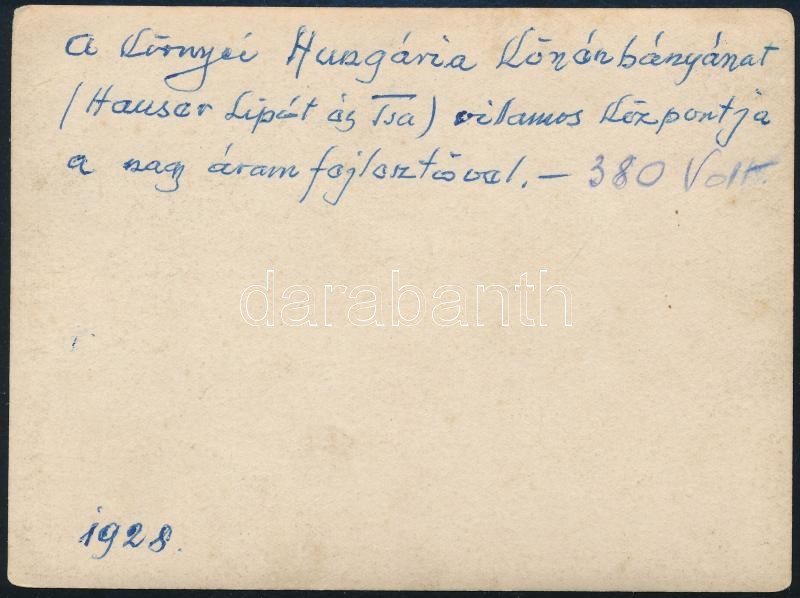 A Környei Hungária Kőszénbányának
(Hauser Lipót és Tsa) villamos központja
a nagy áramfejlesztővel. — 380 Volt.
darabanth
1928.